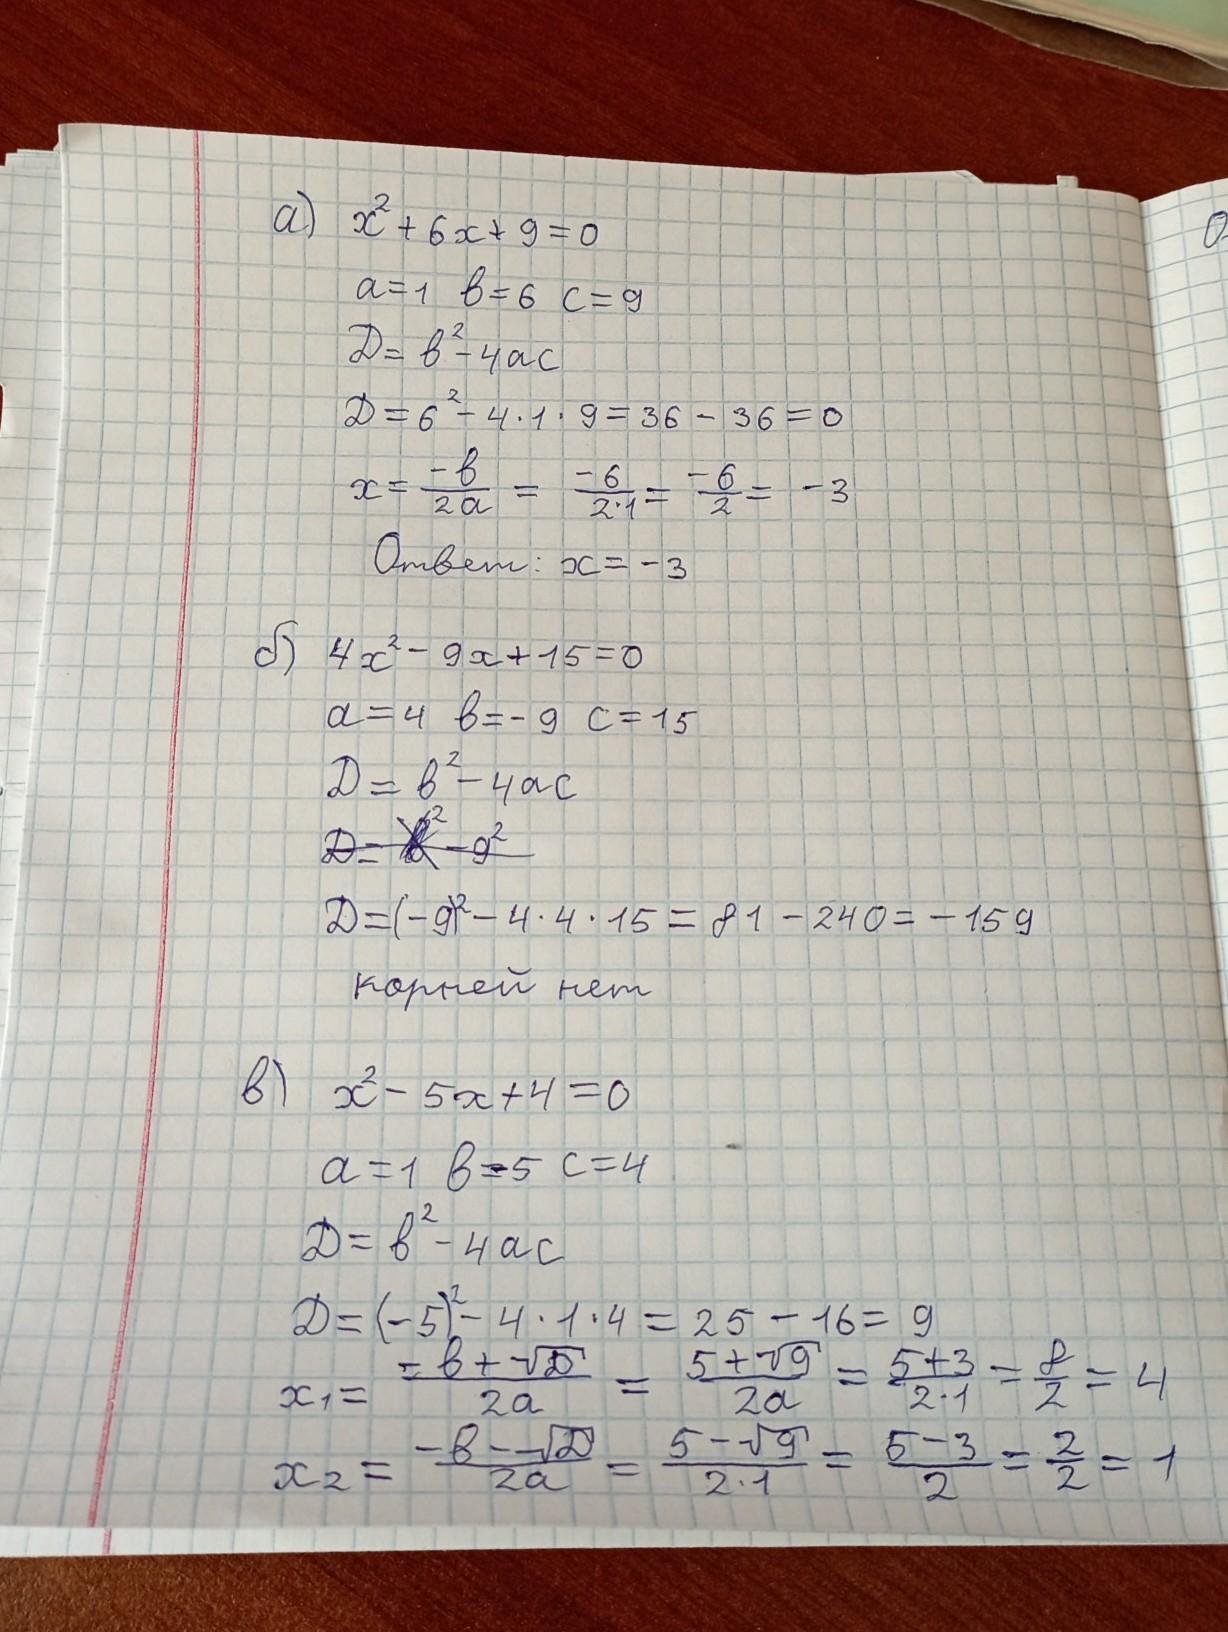 а) x² + 6x + 9 = 0
a = 1 b = 6 c = 9
D = b² - 4ac
D = 6² - 4 · 1 · 9 = 36 - 36 = 0
x = -b/2a = -6/2·1 = -6/2 = -3
Ответ: x = -3
б) 4x² - 9x + 15 = 0
a = 4 b = -9 c = 15
D = b² - 4ac
D = (-9)² - 4 · 4 · 15 = 81 - 240 = -159
корней нет
в) x² - 5x + 4 = 0
a = 1 b = -5 c = 4
D = b² - 4ac
D = (-5)² - 4 · 1 · 4 = 25 - 16 = 9
x₁ = -b + √D/2a = 5 + √9/2a = 5 + 3/2·1 = 8/2 = 4
x₂ = -b - √D/2a = 5 - √9/2·1 = 5 - 3/2 = 2/2 = 1